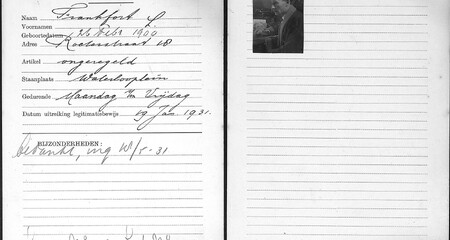 Naam Frankfort S
Voornamen
Geboortedatum 26 Febr 1900
Adres Roetersstraat 18
Artikel ongeregeld
Staanplaats Waterlooplein
Gedurende Maandag t/m Vrijdag
Datum uitreiking legitimatiebewijs 09 Jan 1931.
BIJZONDERHEDEN:
bedankt, ing 10/5-31